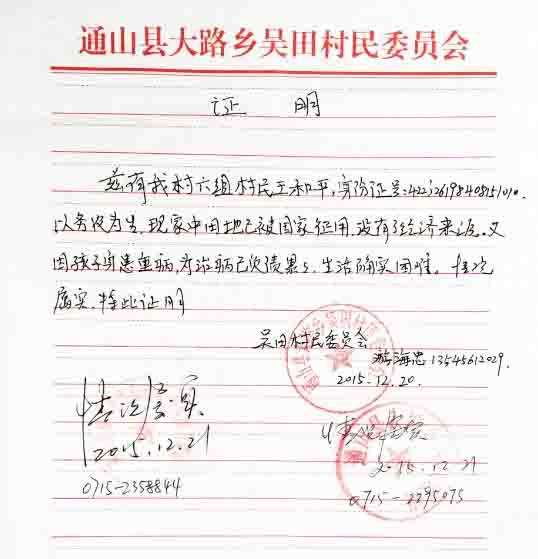 通山县大路乡吴田村民委员会
证 明
兹有我村六组村民王和平,身份证号:422326198408151010.
以务农为生,现家中田地已被国家征用,没有了经济来源.又
因孩子身患重病,为治病已欠债累累,生活确实困难。情况
属实.特此证明
吴田村民委员会
游海忠 13545612029.
2015.12.20.
情况属实
2015.12.21
0715-2358844
情况属实
2015.12.21
0715-2295075